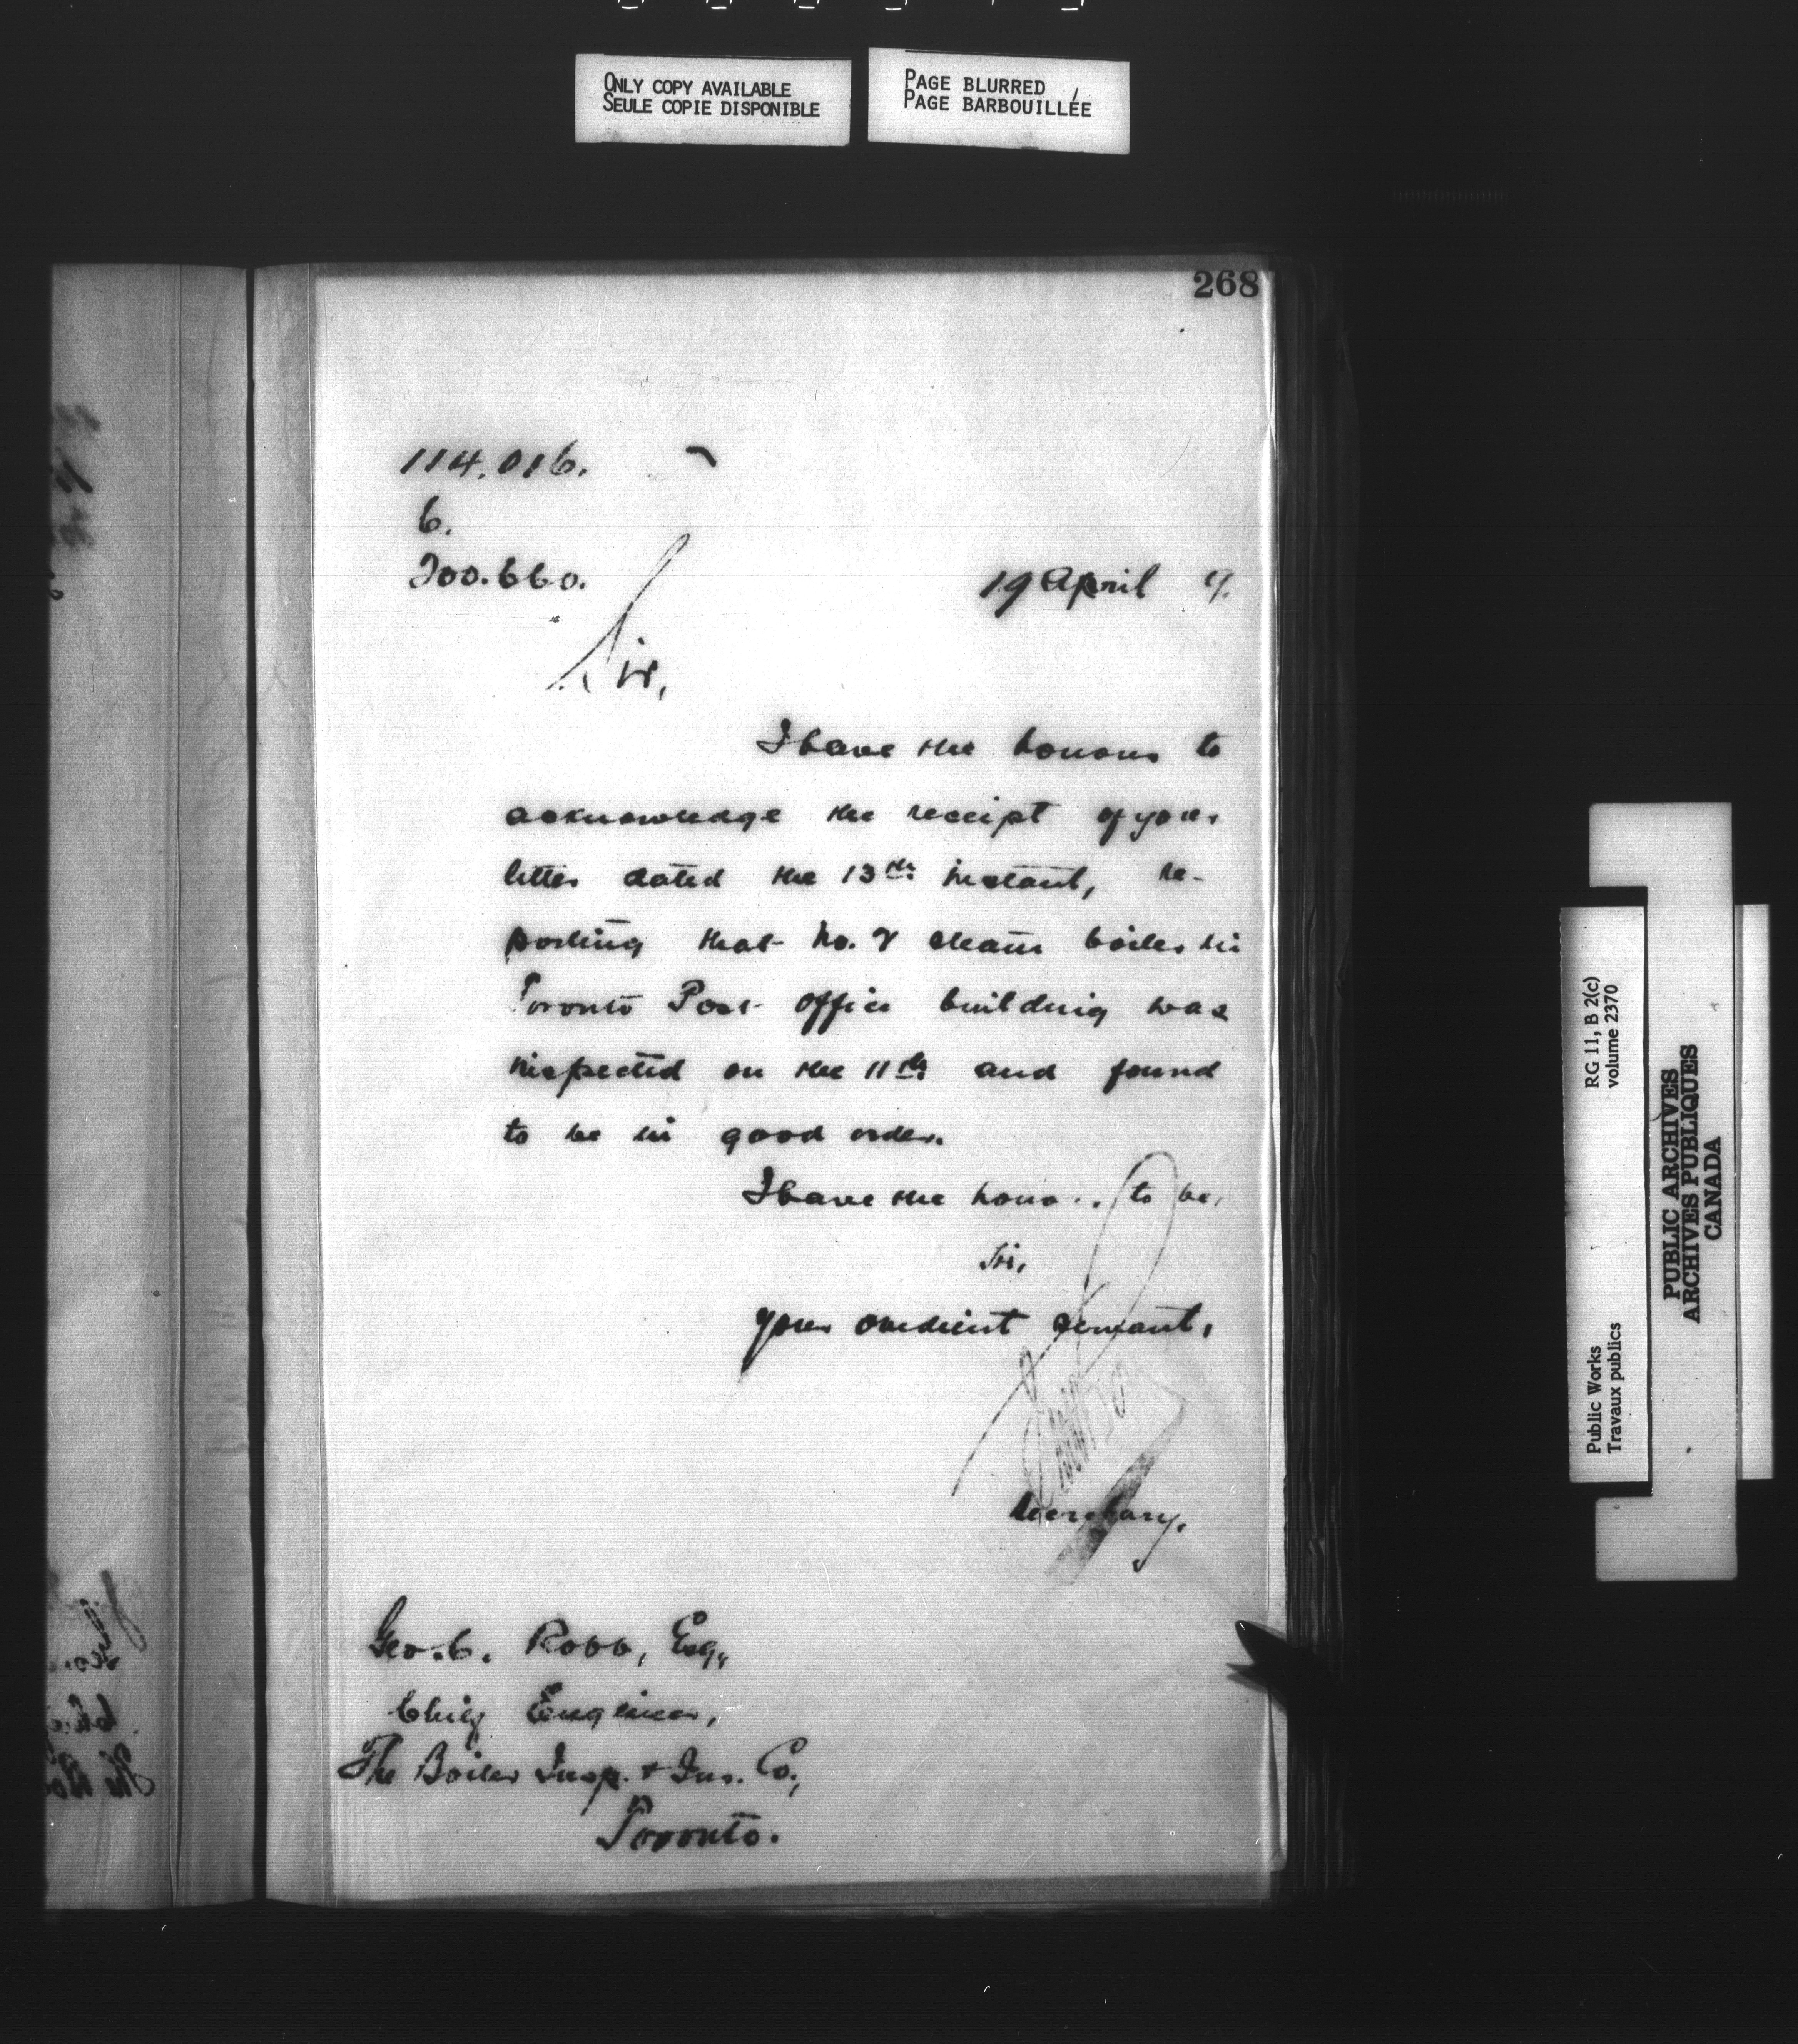 ONLY COPY AVAILABLE
SEULE COPIE DISPONIBLE
PAGE BLURRED
PAGE BARBOUILLÉE
268
114.016.
6.
200.660.
19 April 9.
Sir,
I have the honour to
acknowledge the receipt of your
letter dated the 13th instant, re-
porting that No. 2 steam boiler in
Toronto Post office building was
inspected on the 11th and found
to be in good order.
I have the hono to be,
Sir,
your obedient servant,
Secretary.
Geo. C. Robb, Esq,
Chief Engineer,
The Boiler Insp. & Ins. Co.,
Toronto.
RG 11, B 2(c)
volume 2370
Public Works
Travaux publics
PUBLIC ARCHIVES
ARCHIVES PUBLIQUES
CANADA